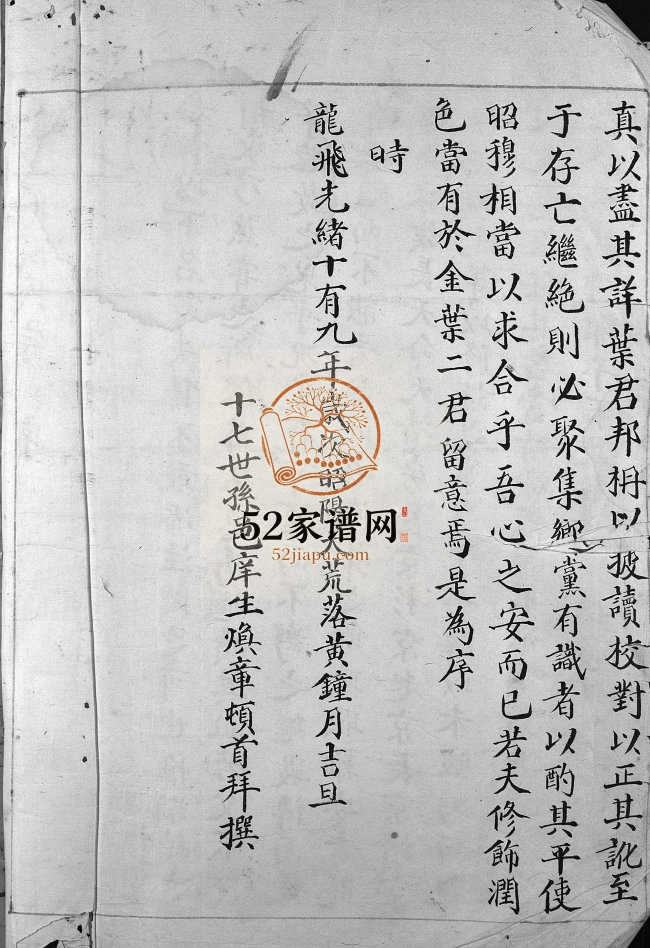 真以盡其詳葉君邦枬以披讀校對以正其訛至
于存亡繼絕則必聚集鄉黨有識者以酌其平使
昭穆相當以求合乎吾心之安而已若夫修飾潤
色當有於金葉二君留意焉是為序
時
龍飛光緒十有九年歲次昭陽大荒落黃鐘月吉旦
十七世孫邑庠生煥章頓首拜撰
52家谱网
52jiapu.com